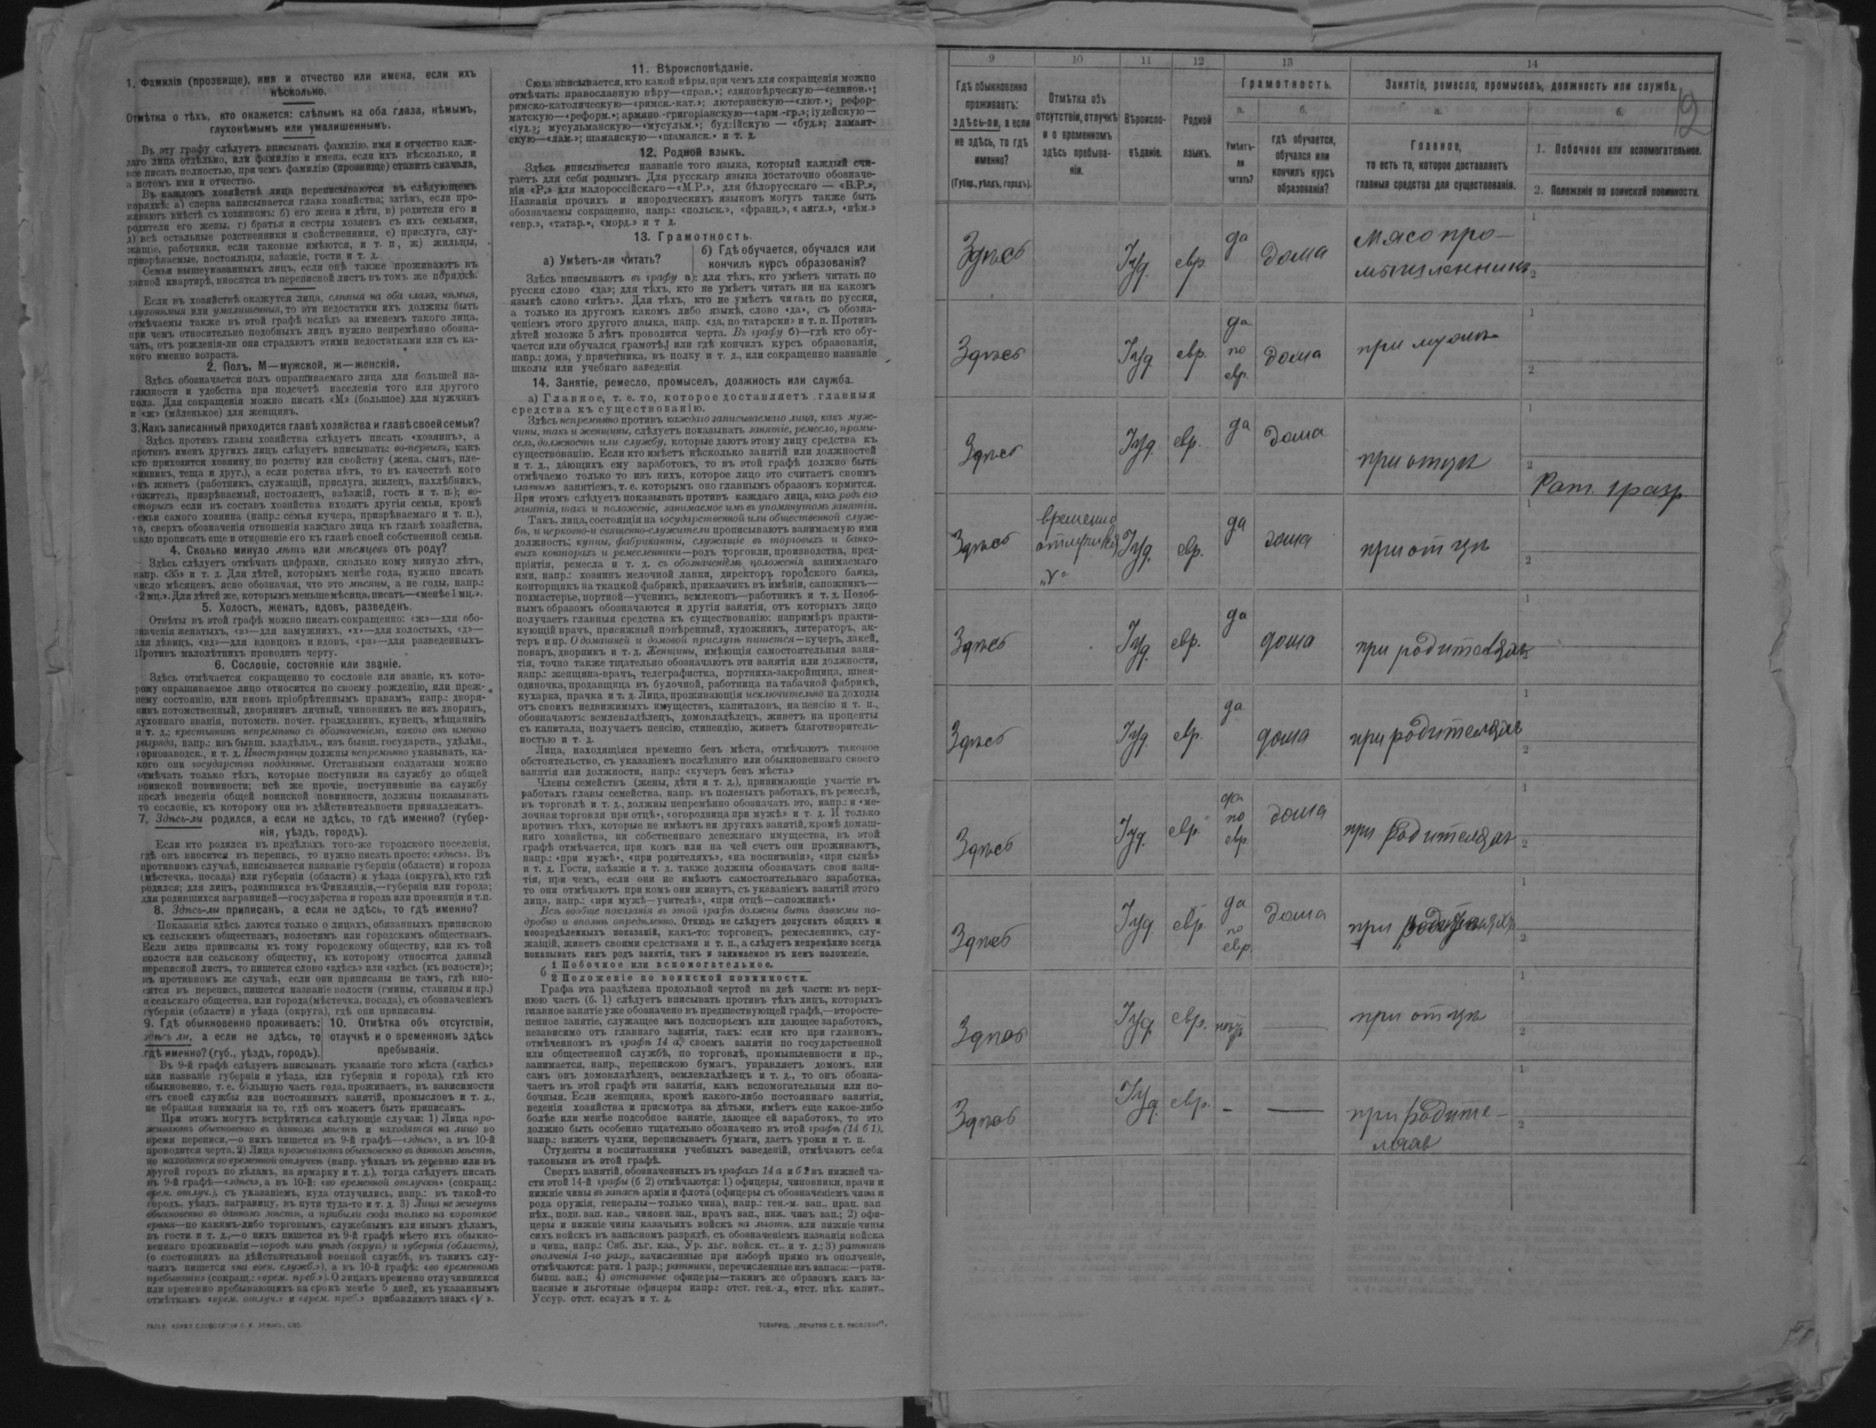 1. Фамилія (прозвище), имя и отчество или имена, если ихъ
нѣсколько.
Отмѣтка о тѣхъ, кто окажется: слѣпымъ на оба глаза, нѣмымъ,
глухонѣмымъ или умалишеннымъ.
Въ эту графу слѣдуетъ вписывать фамилію, имя и отчество каж-
даго лица отдѣльно, или фамилію и имена, если ихъ нѣсколько, и
все писать полностью, при чемъ фамилію (прозвище) ставить сначала,
а потомъ имя и отчество.
Въ каждомъ хозяйствѣ лица переписываются въ слѣдующемъ
порядкѣ: а) сперва записывается глава хозяйства; затѣмъ, если про-
живаютъ вмѣстѣ съ хозяиномъ: б) его жена и дѣти, в) родители его и
родители его жены, г) братья и сестры хозяевъ съ ихъ семьями,
д) всѣ остальные родственники и свойственники, е) прислуга, слу-
жащіе, работники, если таковые имѣются, и т. п., ж) жильцы,
призрѣваемые, постояльцы, заѣзжіе, гости и т. д.
Семьи вышеуказанныхъ лицъ, если онѣ также проживаютъ въ
данной квартирѣ, вносятся въ переписной листъ въ томъ же порядкѣ.
Если въ хозяйствѣ окажутся лица, слѣпыя на оба глаза, нѣмыя,
глухонѣмыя или умалишенныя, то эти недостатки ихъ должны быть
отмѣчаемы также въ этой графѣ вслѣдъ за именемъ такого лица,
при чемъ относительно подобныхъ лицъ нужно непремѣнно обозна-
чать, отъ рожденія-ли они страдаютъ этими недостатками или съ ка-
кого именно возраста.
2. Полъ. М—мужской, ж—женскій.
Здѣсь обозначается полъ опрашиваемаго лица для большей на-
глядности и удобства при подсчетѣ населенія того или другого
пола. Для сокращенія можно писать «М» (большое) для мужчинъ
и «ж» (маленькое) для женщинъ.
3. Какъ записанный приходится главѣ хозяйства и главѣ своей семьи?
Здѣсь противъ главы хозяйства слѣдуетъ писать «хозяинъ», а
противъ именъ другихъ лицъ слѣдуетъ вписывать: во-первыхъ, какъ
кто приходится хозяину по родству или свойству (жена, сынъ, пле-
мянникъ, теща и друг.), а если родства нѣтъ, то въ качествѣ кого
онъ живетъ (работникъ, служащій, прислуга, жилецъ, нахлѣбникъ,
сожитель, призрѣваемый, постоялецъ, заѣзжій, гость и т. п.); во-
вторыхъ если въ составъ хозяйства входятъ другія семьи, кромѣ
семьи самого хозяина (напр.: семья кучера, призрѣваемаго и т. п.),
то, сверхъ обозначенія отношенія каждаго лица къ главѣ хозяйства,
надо прописать еще и отношеніе его къ главѣ своей собственной семьи.
4. Сколько минуло лѣтъ или мѣсяцевъ отъ роду?
Здѣсь слѣдуетъ отмѣчать цифрами, сколько кому минуло лѣтъ,
напр. «35» и т. д. Для дѣтей, которымъ менѣе года, нужно писать
число мѣсяцевъ, ясно обозначая, что это мѣсяцы, а не годы, напр.:
«2 мц.». Для дѣтей же, которымъ меньше мѣсяца, писать—«менѣе 1 мц.».
5. Холостъ, женатъ, вдовъ, разведенъ.
Отвѣты въ этой графѣ можно писать сокращенно: «ж»—для обо-
значенія женатыхъ, «з»—для замужнихъ, «х»—для холостыхъ, «д»—
для дѣвицъ, «вд»—для вдовцовъ и вдовъ, «раз»—для разведенныхъ.
Противъ малолѣтнихъ проводить черту.
6. Сословіе, состояніе или званіе.
Здѣсь отмѣчается сокращенно то сословіе или званіе, къ кото-
рому опрашиваемое лицо относится по своему рожденію, или преж-
нему состоянію, или вновь пріобрѣтеннымъ правамъ, напр.: дворя-
нинъ потомственный, дворянинъ личный, чиновникъ не изъ дворянъ,
духовнаго званія, потомств. почет. гражданинъ, купецъ, мѣщанинъ
и т. д.; крестьянинъ непремѣнно съ обозначеніемъ, какого онъ именно
разряда, напр.: изъ бывш. владѣльч., изъ бывш. государств., удѣльн.,
горнозаводск., и т. д. Иностранцы должны непремѣнно указывать, ка-
кого они государства подданные. Отставными солдатами можно
отмѣчать только тѣхъ, которые поступили на службу до общей
воинской повинности; всѣ же прочіе, поступившіе на службу
послѣ введенія общей воинской повинности, должны показывать
то сословіе, къ которому они въ дѣйствительности принадлежатъ.
7. Здѣсь-ли родился, а если не здѣсь, то гдѣ именно? (губер-
нія, уѣздъ, городъ).
Если кто родился въ предѣлахъ того-же городского поселенія,
гдѣ онъ вносится въ перепись, то нужно писать просто: «здѣсь». Въ
противномъ случаѣ, вписывается названіе губерніи (области) и города
(мѣстечка, посада) или губерніи (области) и уѣзда (округа), кто гдѣ
родился; для лицъ, родившихся въ Финляндіи,—губернія или города;
для родившихся заграницей—государства и города или провинціи и т.п.
8. Здѣсь-ли приписанъ, а если не здѣсь, то гдѣ именно?
Показанія здѣсь даются только о лицахъ, обязанныхъ припискою
къ сельскимъ обществамъ, волостямъ или городскимъ обществамъ.
Если лица приписаны къ тому городскому обществу, или къ той
волости или сельскому обществу, къ которому относится данный
переписной листъ, то пишется слово «здѣсь» или «здѣсь (къ волости)»;
въ противномъ же случаѣ, если они приписаны не тамъ, гдѣ вно-
сятся въ перепись, пишется названіе волости (гмины, станицы и пр.)
и сельскаго общества, или города (мѣстечка, посада), съ обозначеніемъ
губерніи (области) и уѣзда (округа), гдѣ они приписаны.
9. Гдѣ обыкновенно проживаетъ: здѣсь ли, а если не здѣсь, то гдѣ именно? (губ., уѣздъ, городъ).
10. Отмѣтка объ отсутствіи, отлучкѣ и о временномъ здѣсь пребываніи.
Въ 9-й графѣ слѣдуетъ вписывать указаніе того мѣста («здѣсь»
или названіе губерніи и уѣзда, или губерніи и города), гдѣ кто
обыкновенно, т. е. большую часть года, проживаетъ, въ зависимости
отъ своей службы или постоянныхъ занятій, промысловъ и т. д.,
не обращая вниманія на то, гдѣ онъ можетъ быть приписанъ.
При этомъ могутъ встрѣтиться слѣдующіе случаи: 1) Лица про-
живаютъ обыкновенно въ данномъ мѣстѣ и находятся на лицо во
время переписи,—о нихъ пишется въ 9-й графѣ—«здѣсь», а въ 10-й
проводится черта. 2) Лица проживаютъ обыкновенно въ данномъ мѣстѣ,
но находятся во временной отлучкѣ (напр. уѣхалъ въ деревню или въ
другой городъ по дѣламъ, на ярмарку и т. д.), тогда слѣдуетъ писать
въ 9-й графѣ—«здѣсь», а въ 10-й: «во временной отлучкѣ» (сокращ.:
врем. отлуч.), съ указаніемъ, куда отлучились, напр.: въ такой-то
городъ, уѣздъ, заграницу, въ пути туда-то и т. д. 3) Лица не живутъ
обыкновенно въ данномъ мѣстѣ, а прибыли сюда только на короткое
время—по какимъ-либо торговымъ, служебнымъ или инымъ дѣламъ,
въ гости и т. д.,—о нихъ пишется въ 9-й графѣ мѣсто ихъ обыкно-
веннаго проживанія—городъ или уѣздъ (округъ) и губернія (область),
(о состоящихъ на дѣйствительной военной службѣ, въ такихъ слу-
чаяхъ пишется «на воен. службѣ»), а въ 10-й графѣ: «во временномъ
пребываніи» (сокращ.: «врем. преб.»). О лицахъ временно отлучившихся
или временно пребывающихъ на срокъ менѣе 5 дней, къ указаннымъ
отмѣткамъ «врем. отлуч.» и «врем. преб.» прибавляютъ знакъ «V».
11. Вѣроисповѣданіе.
Сюда вписывается, кто какой вѣры, при чемъ для сокращенія можно
отмѣчать: православную вѣру—«прав.»; единовѣрческую—«единов.»;
римско-католическую—«римск.-кат.»; лютеранскую—«лют.»; рефор-
матскую—«реформ.»; армяно-григоріанскую—«арм.-гр.»; іудейскую—
«іуд.»; мусульманскую—«мусульм.»; буддійскую — «буд.»; ламаит-
скую—«лам.»; шаманскую—«шаманск.» и т. д.
12. Родной языкъ.
Здѣсь вписывается названіе того языка, который каждый счи-
таетъ для себя роднымъ. Для русскаго языка достаточно обозначе-
нія «Р.» для малороссійскаго—«М.Р.», для бѣлорусскаго — «Б.Р.»,
Названія прочихъ и инородческихъ языковъ могутъ также быть
обозначаемы сокращенно, напр.: «польск.», «франц.», «англ.», «нѣм.»
«евр.», «татар.», «морд.» и т д.
13. Грамотность.
а) Умѣетъ-ли читать?
б) Гдѣ обучается, обучался или
кончилъ курсъ образованія?
Здѣсь вписываютъ въ графу а): для тѣхъ, кто умѣетъ читать по
русски слово «да»; для тѣхъ, кто не умѣетъ читать ни на какомъ
языкѣ слово «нѣтъ». Для тѣхъ, кто не умѣетъ читать по русски,
а только на другомъ какомъ либо языкѣ, слово «да», съ обозна-
ченіемъ этого другого языка, напр. «да, по татарски» и т. п. Противъ
дѣтей моложе 5 лѣтъ проводится черта. Въ графу б)—гдѣ кто обу-
чается или обучался грамотѣ, или гдѣ кончилъ курсъ образованія,
напр.: дома, у причетника, въ полку и т. д., или сокращенно названіе
школы или учебнаго заведенія.
14. Занятіе, ремесло, промыселъ, должность или служба.
а) Главное, т. е. то, которое доставляетъ главныя
средства къ существованію.
Здѣсь непремѣнно противъ каждаго записываемаго лица, какъ муж-
чины, такъ и женщины, слѣдуетъ показывать занятіе, ремесло, промы-
селъ, должность или службу, которые даютъ этому лицу средства къ
существованію. Если кто имѣетъ нѣсколько занятій или должностей
и т. д., дающихъ ему заработокъ, то въ этой графѣ должно быть
отмѣчаемо только то изъ нихъ, которое лицо это считаетъ своимъ
главнымъ занятіемъ, т. е. которымъ оно главнымъ образомъ кормится.
При этомъ слѣдуетъ показывать противъ каждаго лица, какъ родъ его
занятія, такъ и положеніе, занимаемое имъ въ упомянутомъ занятіи.
Такъ, лица, состоящія на государственной или общественной служ-
бѣ, и церковно-и священно-служители прописываютъ занимаемую ими
должность; купцы, фабриканты, служащіе въ торговыхъ и банко-
выхъ конторахъ и ремесленники—родъ торговли, производства, пред-
пріятія, ремесла и т. д. съ обозначеніемъ положенія занимаемаго
ими, напр.: хозяинъ мелочной лавки, директоръ городского банка,
конторщикъ на ткацкой фабрикѣ, приказчикъ въ имѣніи, сапожникъ—
подмастерье, портной—ученикъ, землекопъ—работникъ и т. д. Подоб-
нымъ образомъ обозначаются и другія занятія, отъ которыхъ лицо
получаетъ главныя средства къ существованію: напримѣръ практи-
кующій врачъ, присяжный повѣренный, художникъ, литераторъ, ак-
теръ и пр. О домашней и дворовой прислугѣ пишется—кучеръ, лакей,
поваръ, дворникъ и т. д. Женщины, имѣющія самостоятельныя заня-
тія, точно также тщательно обозначаютъ эти занятія или должности,
напр.: женщина-врачъ, телеграфистка, портниха-закройщица, швея-
одиночка, продавщица въ булочной, работница на табачной фабрикѣ,
кухарка, прачка и т. д. Лица, проживающія исключительно на доходы
отъ своихъ недвижимыхъ имуществъ, капиталовъ, на пенсію и т. п.,
обозначаютъ: землевладѣлецъ, домовладѣлецъ, живетъ на проценты
съ капитала, получаетъ пенсію, стипендію, живетъ благотворитель-
ностью и т. д.
Лица, находящіяся временно безъ мѣста, отмѣчаютъ таковое
обстоятельство, съ указаніемъ послѣдняго или обыкновеннаго своего
занятія или должности, напр.: «кучеръ безъ мѣста»
Члены семействъ (жены, дѣти и т. д.), принимающіе участіе въ
работахъ главы семейства, напр. въ полевыхъ работахъ, въ ремеслѣ,
въ торговлѣ и т. д., должны непремѣнно обозначать это, напр.: и «ме-
лочная торговля при отцѣ», «огородница при мужѣ» и т. д. И только
противъ тѣхъ, которые не имѣютъ ни другихъ занятій, кромѣ домаш-
няго хозяйства, ни собственнаго денежнаго имущества, въ этой
графѣ отмѣчается, при комъ или на чей счетъ они проживаютъ,
напр.: «при мужѣ», «при родителяхъ», «на воспитаніи», «при сынѣ»
и т. д. Гости, заѣзжіе и т. д. также должны обозначать свои заня-
тія, при чемъ, если они не имѣютъ самостоятельнаго заработка,
то они отмѣчаютъ при комъ они живутъ, съ указаніемъ занятій этого
лица, напр.: «при мужѣ—учителѣ», «при отцѣ—сапожникѣ»
Всѣ вообще показанія въ этой графѣ должны быть даваемы по-
дробно и вполнѣ опредѣленно. Отнюдь не слѣдуетъ допускать общихъ и
неопредѣленныхъ показаній, какъ-то: торговецъ, ремесленникъ, слу-
жащій, живетъ своими средствами и т. п., а слѣдуетъ непремѣнно всегда
показывать какъ родъ занятія, такъ и занимаемое въ немъ положеніе.
б 1 Побочное или вспомогательное.
2 Положеніе по воинской повинности.
Графа эта раздѣлена продольной чертой на двѣ части: въ верх-
нюю часть (б. 1) слѣдуетъ вписывать противъ тѣхъ лицъ, которыхъ
главное занятіе уже обозначено въ предшествующей графѣ,—второсте-
пенное занятіе, служащее имъ подспорьемъ или дающее заработокъ,
независимо отъ главнаго занятія, такъ: если кто при главномъ,
отмѣченномъ въ графѣ 14 а, своемъ занятіи по государственной
или общественной службѣ, по торговлѣ, промышленности и пр.,
занимается, напр., перепискою бумагъ, управляетъ домомъ, или
самъ онъ домовладѣлецъ, землевладѣлецъ и т. д., то онъ обозна-
чаетъ въ этой графѣ эти занятія, какъ вспомогательныя или по-
бочныя. Если женщина, кромѣ какого-либо постояннаго занятія,
веденія хозяйства и присмотра за дѣтьми, имѣетъ еще какое-либо
болѣе или менѣе подсобное занятіе, дающее ей заработокъ, то это
должно быть особенно тщательно обозначено въ этой графѣ (14 б 1),
напр.: вяжетъ чулки, переписываетъ бумаги, даетъ уроки и т. п.
Студенты и воспитанники учебныхъ заведеній, отмѣчаютъ себя
таковыми въ этой графѣ.
Сверхъ занятій, обозначенныхъ въ графахъ 14 а и б 2 въ нижней ча-
сти этой 14-й графы (б 2) отмѣчаются: 1) офицеры, чиновники, врачи и
нижніе чины въ запасѣ арміи и флота (офицеры съ обозначеніемъ чина и
рода оружія, генералы—только чина), напр.: ген.-м. зап., прап. зап
пѣх., подп. зап. кав., чиновн. зап., врачъ зап., ниж. чинъ зап.; 2) офи-
церы и нижніе чины казачьихъ войскъ на льготѣ, или нижніе чины
сихъ войскъ въ запасномъ разрядѣ, съ обозначеніемъ названія войска
и чина, напр.: Сиб. льг. каз., Ур. льг. войск. ст., и т. д.; 3) ратники
ополченія 1-го разр., зачисленные при наборѣ прямо въ ополченіе,
отмѣчаются: ратн. 1 разр.; ратники, перечисленные изъ запаса:—ратн.
бывш. зап.; 4) отставные офицеры—такимъ же образомъ какъ за-
пасные и льготные офицеры напр.: отст. ген.-л., отст. пѣх. капит.,
Уссур. отст. есаулъ и т. д.
9 10 11 12 13 14
12
Гдѣ обыкновенно
проживаетъ:
здѣсь-ли, а если
не здѣсь, то гдѣ
именно?
(Губер., уѣздъ, городъ).
Отмѣтка объ
отсутствіи, отлучкѣ
и о временномъ
здѣсь пребыва-
ніи.
Вѣроиспо-
вѣданіе.
Родной
языкъ.
Грамотность.
а.
Умѣетъ-
ли
читать?
б.
гдѣ обучается,
обучался или
кончилъ курсъ
образованія?
Занятіе, ремесло, промыселъ, должность или служба.
а.
Главное,
то есть то, которое доставляетъ
главныя средства для существованія.
б.
1. Побочное или вспомогательное.
2. Положеніе по воинской повинности.
Здѣсь Іуд. евр. да дома Мясопро-
мышленникъ
Здѣсь Іуд. евр. да по евр. дома при мужѣ
Здѣсь Іуд. евр. да дома при отцѣ
Рат. 1 разр
Здѣсь временно Іуд. евр. да дома при отцѣ
„V“
Здѣсь Іуд. евр. да дома при родителяхъ
Здѣсь Іуд евр. да дома при родителяхъ
Здѣсь Іуд. евр. да по евр. дома при родителяхъ
Здѣсь Іуд. евр. да по евр. дома при родителяхъ
Здѣсь Іуд. евр. нѣтъ — при отцѣ
Здѣсь Іуд. евр. — — при родите-
ляхъ